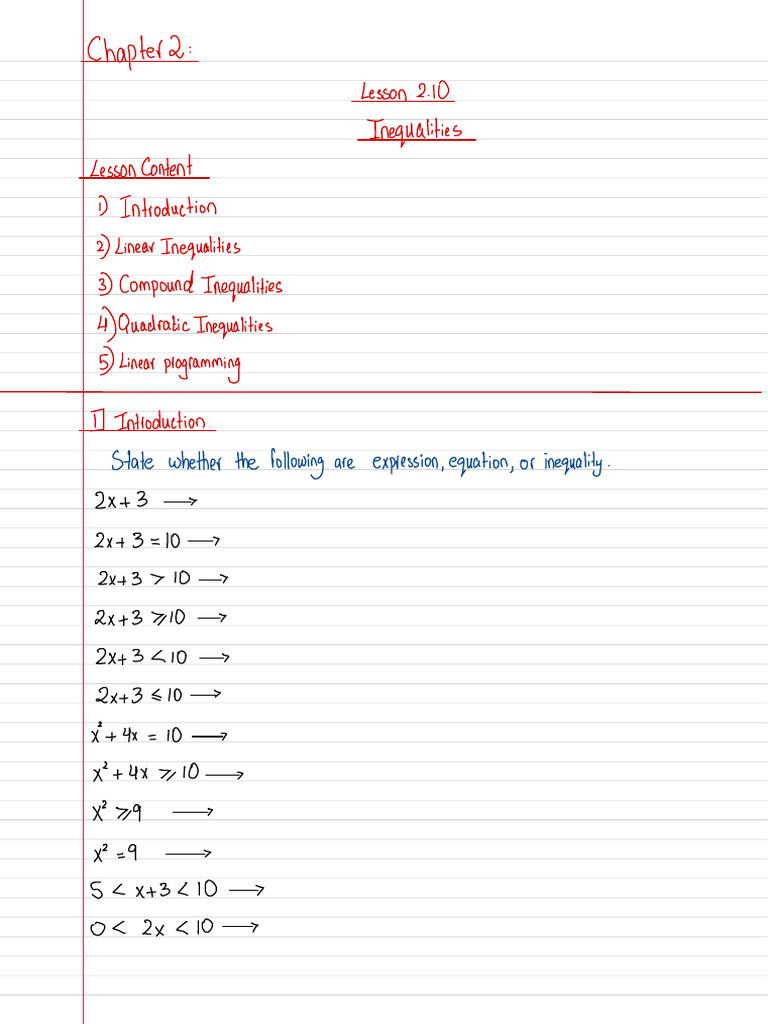 Chapter 2:
Lesson 2.10
Inequalities
Lesson Content
1) Introduction
2) Linear Inequalities
3) Compound Inequalities
4) Quadratic Inequalities
5) Linear programming
1] Introduction
State whether the following are expression, equation, or inequality.
2x + 3 →
2x + 3 = 10 →
2x + 3 > 10 →
2x + 3 ⩾ 10 →
2x + 3 < 10 →
2x + 3 ≤ 10 →
x² + 4x = 10 →
x² + 4x ⩾ 10 →
x² ⩾ 9 →
x² = 9 →
5 < x + 3 < 10 →
0 < 2x < 10 →